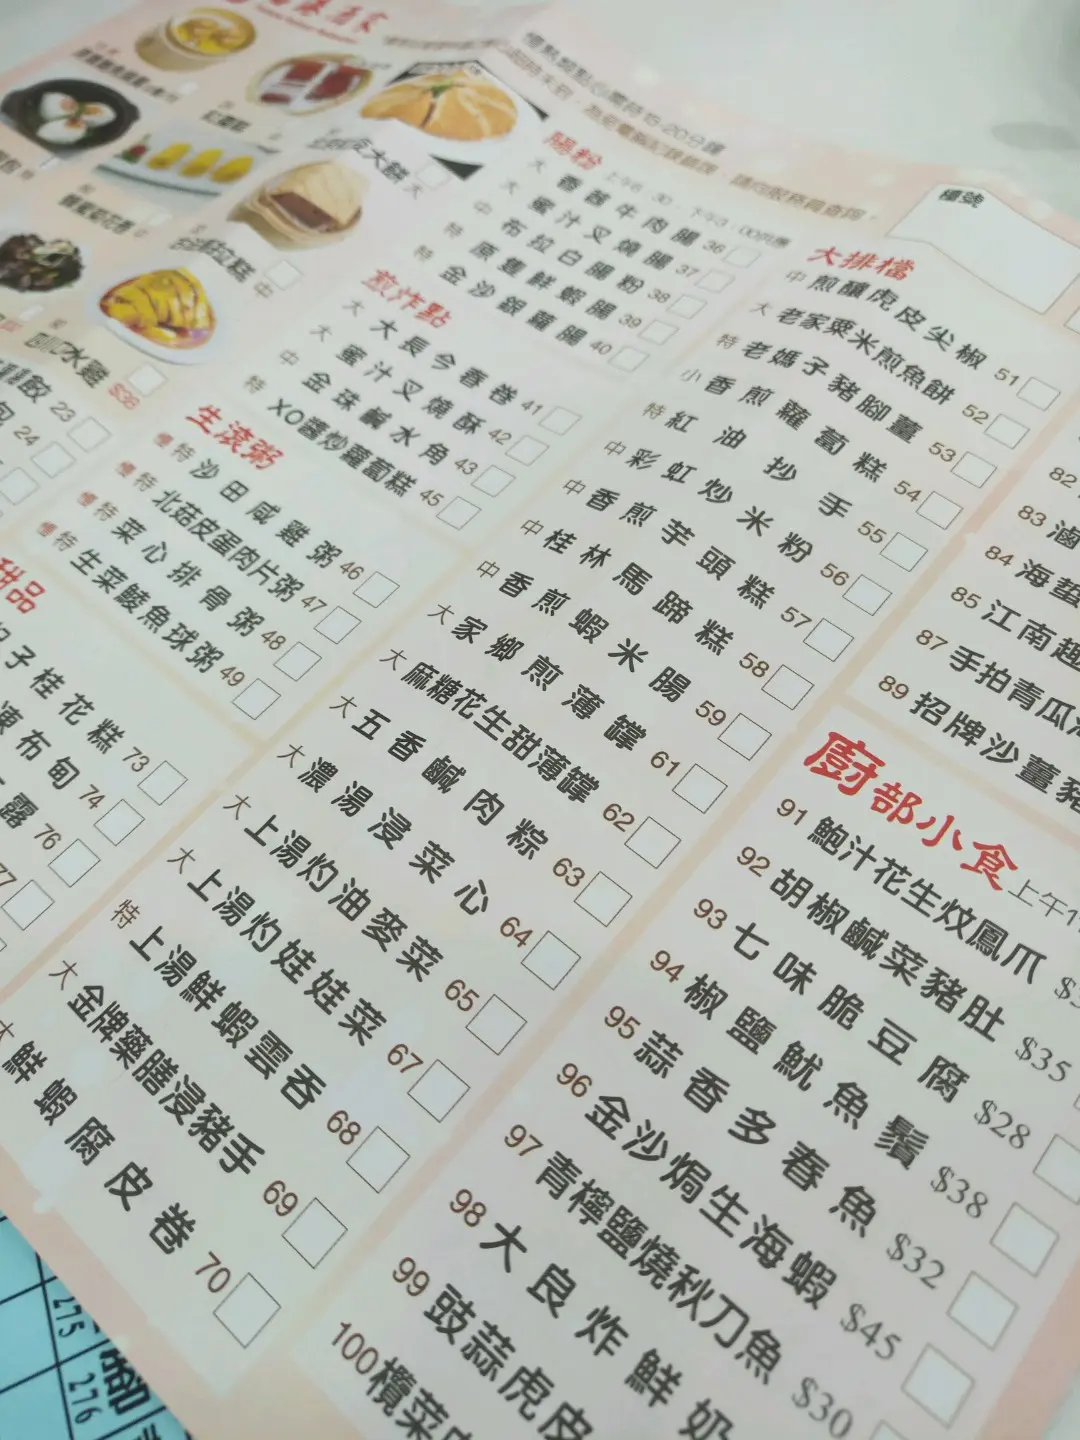 慢熱
需時15-20分鐘
檯號
紅
大餅 大
拉糕 中
水雞 $38
餃 23
包 24
腸粉
大 香茜牛肉腸 36
大 蜜汁叉燒腸 37
中 布拉白腸粉 38
特 原隻鮮蝦腸 39
特 金沙銀蘿腸 40
煎炸點
大 大長今春卷 41
大 蜜汁叉燒酥 42
中 金珠鹹水角 43
特 XO醬炒蘿蔔糕 45
生滾粥
慢 特 沙田咸雞粥 46
慢 特 北菇皮蛋肉片粥 47
慢 特 菜心排骨粥 48
慢 特 生菜鯪魚球粥 49
甜品
子桂花糕 73
凍布甸 74
露 76
77
大排檔
中 煎釀虎皮尖椒 51
大 老家粟米煎魚餅 52
特 老媽子豬腳薑 53
小 香煎蘿蔔糕 54
特 紅油抄手 55
中 彩虹炒米粉 56
中 香煎芋頭糕 57
中 桂林馬蹄糕 58
中 香煎蝦米腸 59
大 家鄉煎薄罉 61
大 麻糖花生甜薄罉 62
大 五香鹹肉粽 63
大 濃湯浸菜心 64
大 上湯灼油麥菜 65
大 上湯灼娃娃菜 67
特 上湯鮮蝦雲吞 68
大 金牌藥膳浸豬手 69
大 鮮蝦腐皮卷 70
82
83 滷
84 海蜇
85 江南趣
87 手拍青瓜
89 招牌沙薑豬
廚部小食 上午1
91 鮑汁花生炆鳳爪
92 胡椒鹹菜豬肚 $35
93 七味脆豆腐 $28
94 椒鹽魷魚鬚 $38
95 蒜香多春魚 $32
96 金沙焗生海蝦 $45
97 青檸鹽燒秋刀魚 $30
98 大良炸鮮奶
99 豉蒜虎皮
100 欖菜
275
276